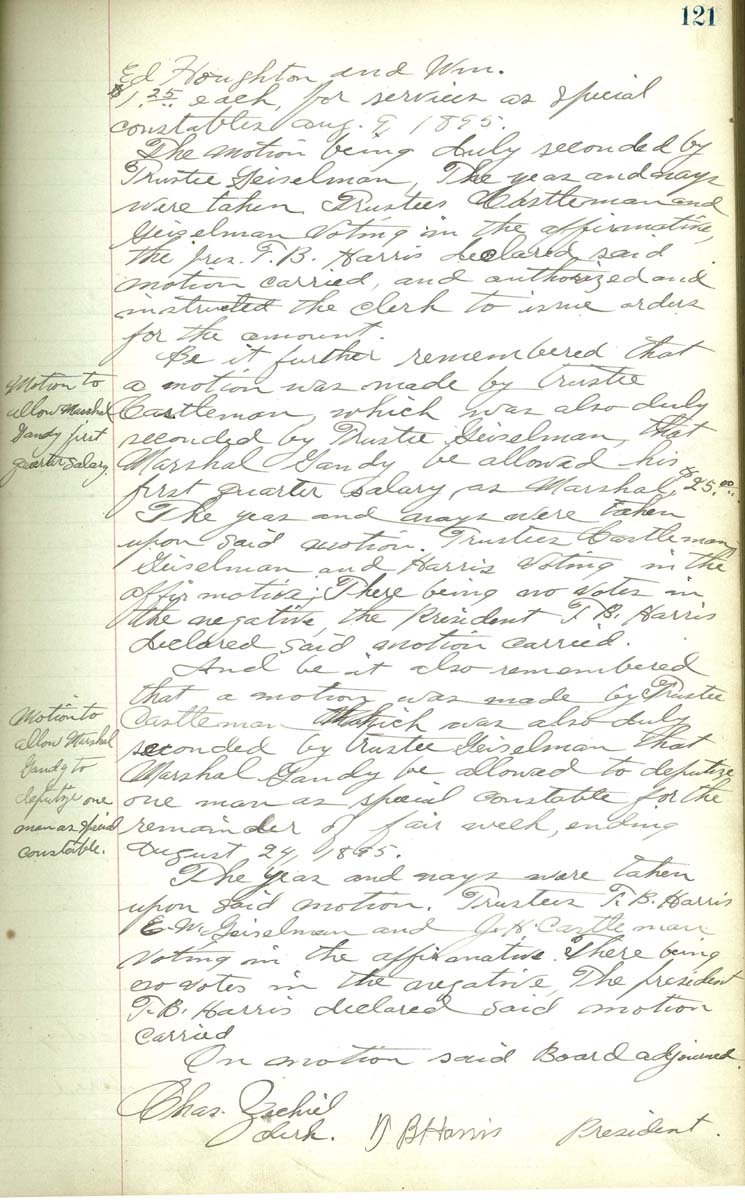 121
Ed Houghton and Wm.
$1.25 each, for services as special
constables Aug. 9, 1895.
The motion being duly seconded by
Trustee Geiselman, The yeas and nays
were taken. Trustees Castleman and
Geiselman Voting in the affirmative,
the pres. T. B. Harris declared said
motion carried, and authorized and
instructed the clerk to issue orders
for the amount.
Be it further remembered that
Motion to
allow Marshal
Gandy first
quarter salary.
a motion was made by Trustee
Castleman, which was also duly
seconded by Trustee Geiselman, that
Marshal Gandy be allowed his
first quarter salary as Marshal, $25.00.
The yeas and nays were taken
upon said motion. Trustees Castleman,
Geiselman and Harris Voting in the
affirmative; There being no votes in
the negative, the President T. B. Harris
declared said motion carried.
And be it also remembered
that a motion was made by Trustee
Motion to
allow Marshal
Gandy to
deputize one
man as special
constable.
Castleman which was also duly
seconded by Trustee Geiselman that
Marshal Gandy be allowed to deputize
one man as special constable for the
remainder of fair week, ending
August 24, 1895.
The yeas and nays were taken
upon said motion. Trustees T. B. Harris
E. W. Geiselman and J. H. Castleman
Voting in the affirmative. There being
no votes in the negative, The president
T. B. Harris declared said motion
carried
On motion said Board adjourned.
Chas. Zechiel
Clerk.
T B Harris President.